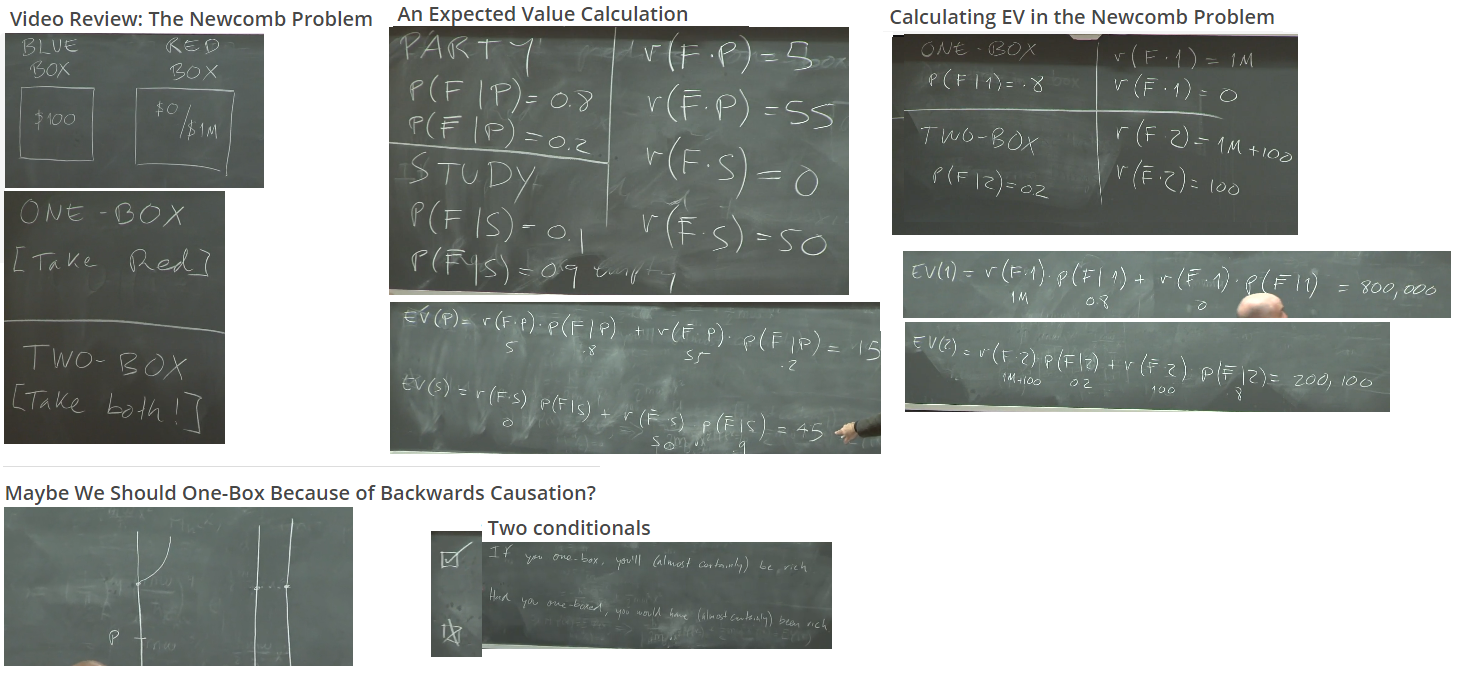 Video Review: The Newcomb Problem
BLUE BOX
RED BOX
$100
$0/$1M
ONE-BOX
[Take Red]
TWO-BOX
[Take both!]
An Expected Value Calculation
PARTY
P(F|P)=0.8
P(F̅|P)=0.2
STUDY
P(F|S)=0.1
P(F̅|S)=0.9 empty
r(F·P)=5
r(F̅·P)=55
r(F·S)=0
r(F̅·S)=50
EV(P)=r(F·P)·P(F|P) + r(F̅·P)·P(F̅|P)=15
5 .8 55 .2
EV(S)=r(F·S) P(F|S) + r(F̅·S) P(F̅|S)=45
0 50 .9
Calculating EV in the Newcomb Problem
ONE-BOX
P(F|1)=.8
TWO-BOX
P(F|2)=0.2
r(F·1)=1M
r(F̅·1)=0
r(F·2)=1M+100
r(F̅·2)=100
EV(1)=r(F·1)·P(F|1)+r(F̅·1)·P(F̅|1) = 800,000
1M 0.8 0
EV(2)=r(F·2) P(F|2)+r(F̅·2) P(F̅|2)=200,100
1M+100 0.2 100 .8
Maybe We Should One-Box Because of Backwards Causation?
P
Two conditionals
If you one-box, you'll (almost certainly) be rich
Had you one-boxed, you would have (almost certainly) been rich